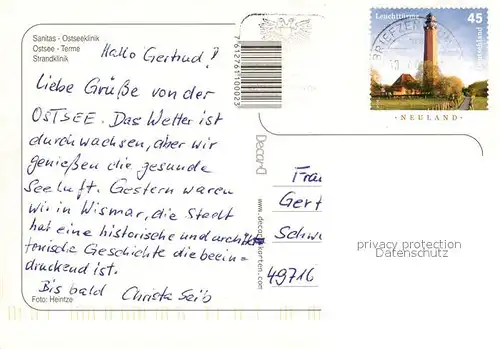 Sanitas - Ostseeklinik
Ostsee - Terme
Strandklinik
Hallo Gertrud!
Liebe Grüße von der
OSTSEE. Das Wetter ist
durchwachsen, aber wir
genießen die gesunde
Seeluft. Gestern waren
wir in Wismar, die Stadt
hat eine historische und architek
tonische Geschichte die beein-
druckend ist.
Bis bald Christa Seib
Foto: Heintze
7612761100023
Decard
www.decardkarten.com
Leuchttürme 45
Deutschland
BRIEFZEN
NEULAND
Frau
Gert
Schw
49716
privacy protection
Datenschutz